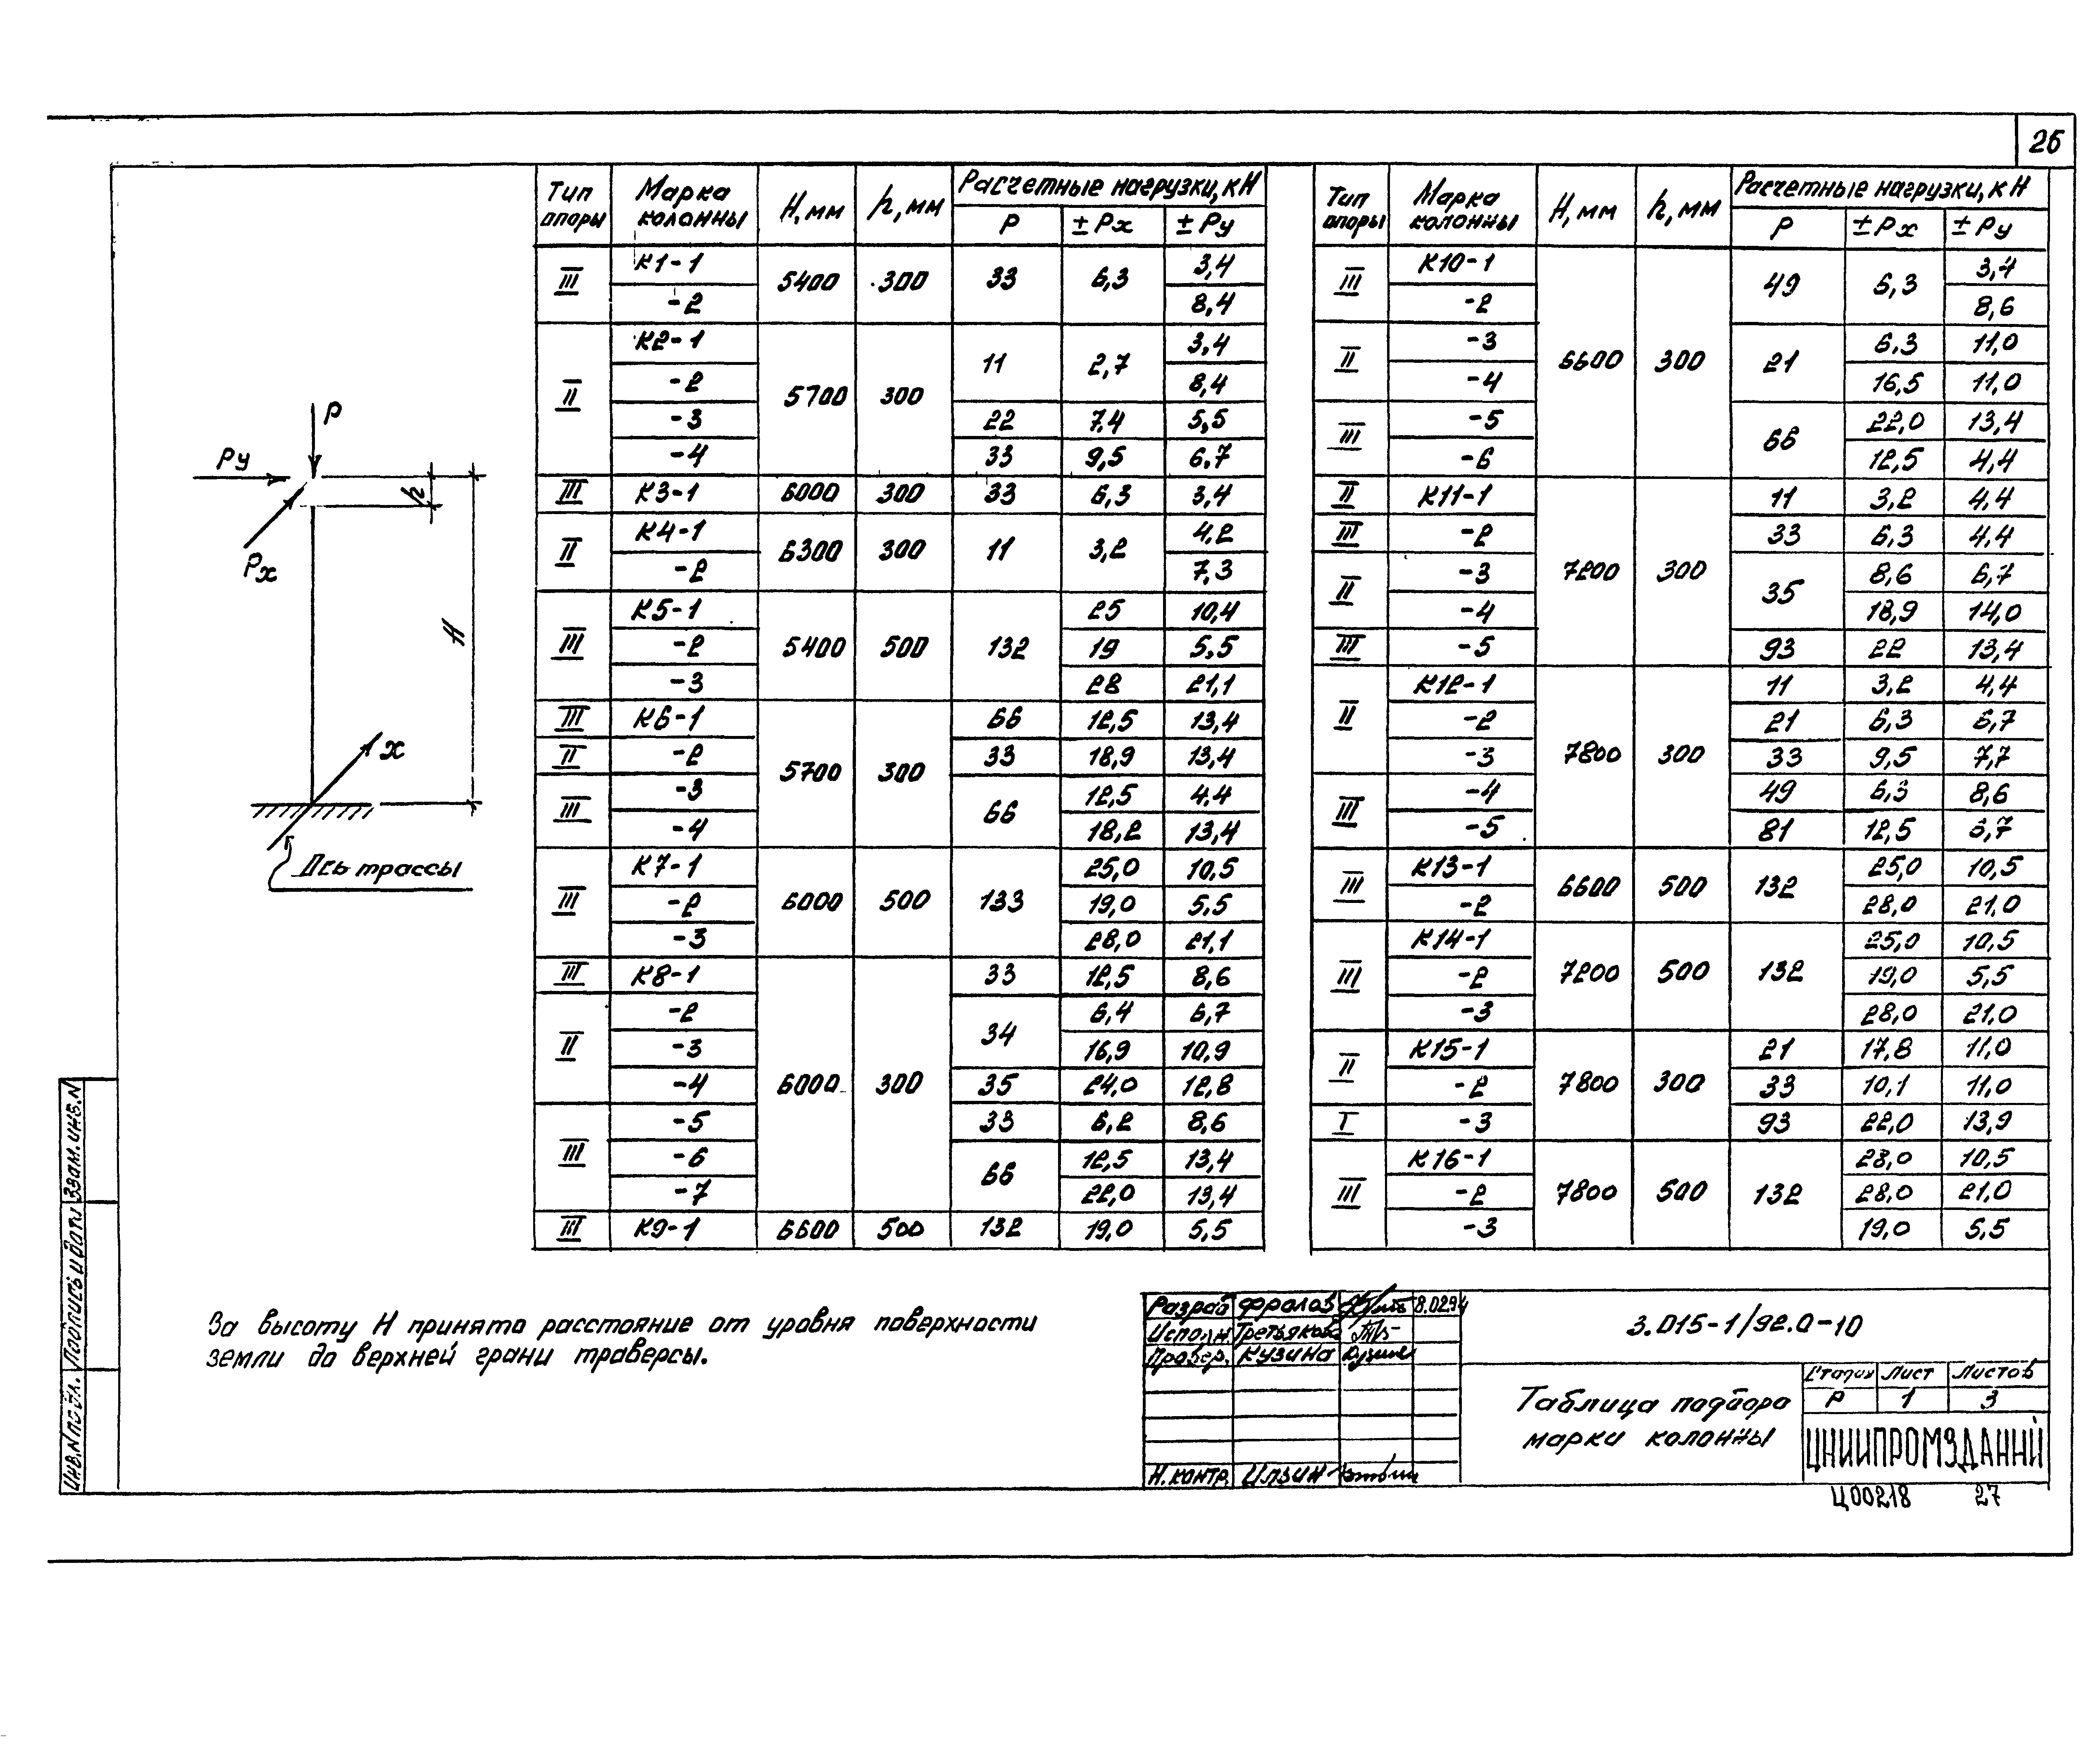 26
Тип опоры | Марка колонны | H, мм | h, мм | Расчетные нагрузки, кН
P | ±Px | ±Py
III | К1-1 | 5400 | 300 | 33 | 6,3 | 3,4
-2 | 8,4
II | К2-1 | 5700 | 300 | 11 | 2,7 | 3,4
-2 | 8,4
-3 | 22 | 7.4 | 5,5
-4 | 33 | 9,5 | 6,7
III | К3-1 | 6000 | 300 | 33 | 6,3 | 3,4
II | К4-1 | 6300 | 300 | 11 | 3,2 | 4,2
-2 | 7,3
III | К5-1 | 5400 | 500 | 132 | 25 | 10,4
-2 | 19 | 5,5
-3 | 28 | 21,1
III | К6-1 | 5700 | 300 | 66 | 12,5 | 13,4
II | -2 | 33 | 18,9 | 13,4
III | -3 | 66 | 12,5 | 4,4
-4 | 18,2 | 13,4
III | К7-1 | 6000 | 500 | 133 | 25,0 | 10,5
-2 | 19,0 | 5,5
-3 | 28,0 | 21,1
III | К8-1 | 6000 | 300 | 33 | 12,5 | 8,6
II | -2 | 34 | 6,4 | 6,7
-3 | 16,9 | 10,9
-4 | 35 | 24,0 | 12,8
III | -5 | 33 | 6,2 | 8,6
-6 | 66 | 12,5 | 13,4
-7 | 22,0 | 13,4
III | К9-1 | 6600 | 500 | 132 | 19,0 | 5,5
Тип опоры | Марка колонны | H, мм | h, мм | Расчетные нагрузки, кН
P | ±Px | ±Py
III | К10-1 | 6600 | 300 | 49 | 6,3 | 3,4
-2 | 8,6
II | -3 | 21 | 6,3 | 11,0
-4 | 16,5 | 11,0
III | -5 | 66 | 22,0 | 13,4
-6 | 12,5 | 4,4
II | К11-1 | 7200 | 300 | 11 | 3,2 | 4,4
III | -2 | 33 | 6,3 | 4,4
II | -3 | 35 | 8,6 | 6,7
-4 | 18,9 | 14,0
III | -5 | 93 | 22 | 13,4
II | К12-1 | 7800 | 300 | 11 | 3,2 | 4,4
-2 | 21 | 6,3 | 6,7
-3 | 33 | 9,5 | 7,7
III | -4 | 49 | 6,3 | 8,6
-5 | 81 | 12,5 | 6,7
III | К13-1 | 6600 | 500 | 132 | 25,0 | 10,5
-2 | 28,0 | 21,0
III | К14-1 | 7200 | 500 | 132 | 25,0 | 10,5
-2 | 19,0 | 5,5
-3 | 28,0 | 21,0
II | К15-1 | 7800 | 300 | 21 | 17,8 | 11,0
-2 | 33 | 10,1 | 11,0
I | -3 | 93 | 22,0 | 13,9
III | К16-1 | 7800 | 500 | 132 | 28,0 | 10,5
-2 | 28,0 | 21,0
-3 | 19,0 | 5,5
P
Py
Px
h
H
x
Ось трассы
За высоту H принято расстояние от уровня поверхности
земли до верхней грани траверсы.
Разраб | Фролов | 8.02.94
Исполн. | Третьякова
Провер. | Кузина
Н.контр. | Ильин
3.015-1/92.0-10
Таблица подбора
марки колонны
Стадия | Лист | Листов
Р | 1 | 3
ЦНИИПРОМЗДАНИЙ
Ц00218 27
Инв.N подл. | Подпись и дата | Взам. инв. N